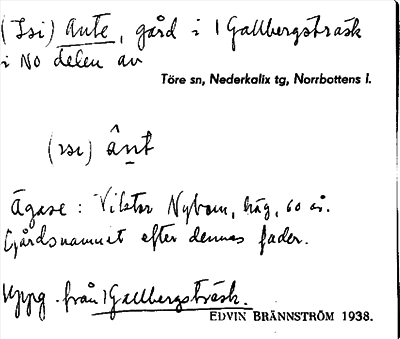 (Isi) Ante, gård i Gallbergsträsk
i NO delen av
Töre sn, Nederkalix tg, Norrbottens l.
(isi) ânt
Ägare: Viktor Nybom, häg, 60 år.
Gårdsnamnet efter dennes fader.
Uppg. från Gallbergsträsk.
EDVIN BRÄNNSTRÖM 1938.